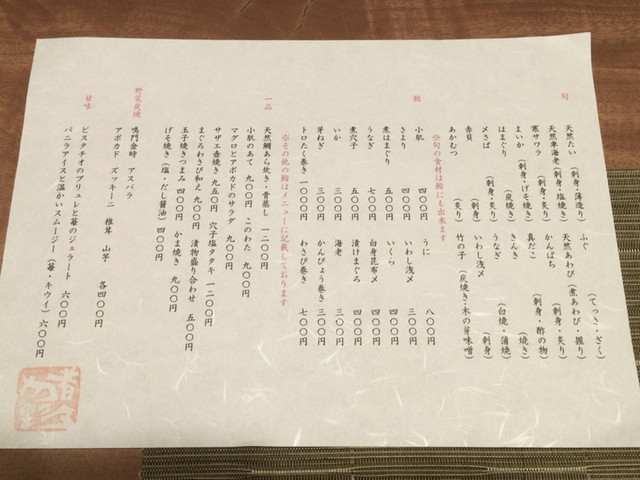 旬
天然たい(刺身・薄造り) ふぐ (てっさ・ざく)
天然車海老(刺身・塩焼き) 天然あわび(煮あわび・握り)
寒サワラ(刺身・炙り) かんぱち (刺身・炙り)
まいか(刺身・げそ焼き) 真だこ (刺身・酢の物)
はまぐり (炭焼き) きんき (焼き)
〆さば (刺身・炙り) うなぎ (白焼・蒲焼)
赤貝 (刺身) いわし浅〆 (刺身)
あかむつ (炙り) 竹の子 (炭焼き・木の芽味噌)
※旬の食材は鮨にも出来ます
鮨
小肌 四〇〇円 うに 八〇〇円
さより 四〇〇円 いわし浅〆 三〇〇円
煮はまぐり 五〇〇円 いくら 四〇〇円
うなぎ 七〇〇円 白身昆布〆 四〇〇円
煮穴子 五〇〇円 漬けまぐろ 四〇〇円
いか 三〇〇円 海老 三〇〇円
芽ねぎ 三〇〇円 かんぴょう巻き 三〇〇円
トロたく巻き 一〇〇〇円 わさび巻き 七〇〇円
※その他の鮨はメニューに記載しております
一品
天然鯛あら炊き・骨蒸し 一二〇〇円
小肌のあて 九〇〇円 このわた 九〇〇円
マグロとアボカドのサラダ 九〇〇円
サザエ壺焼き 九五〇円 穴子塩タタキ 一二〇〇円
まぐろわさび和え 九〇〇円 漬物盛り合わせ 五〇〇円
玉子焼きつまみ 四〇〇円 かま焼き 九〇〇円
げそ焼き(塩・だし醤油) 四〇〇円
野菜炭焼
鳴門金時 アスパラ
アボカド ズッキーニ 椎茸 山芋 各四〇〇円
甘味
ピスタチオのブリュレと苺のジェラート 六〇〇円
バニラアイスと温かいスムージー(苺・キウイ) 六〇〇円